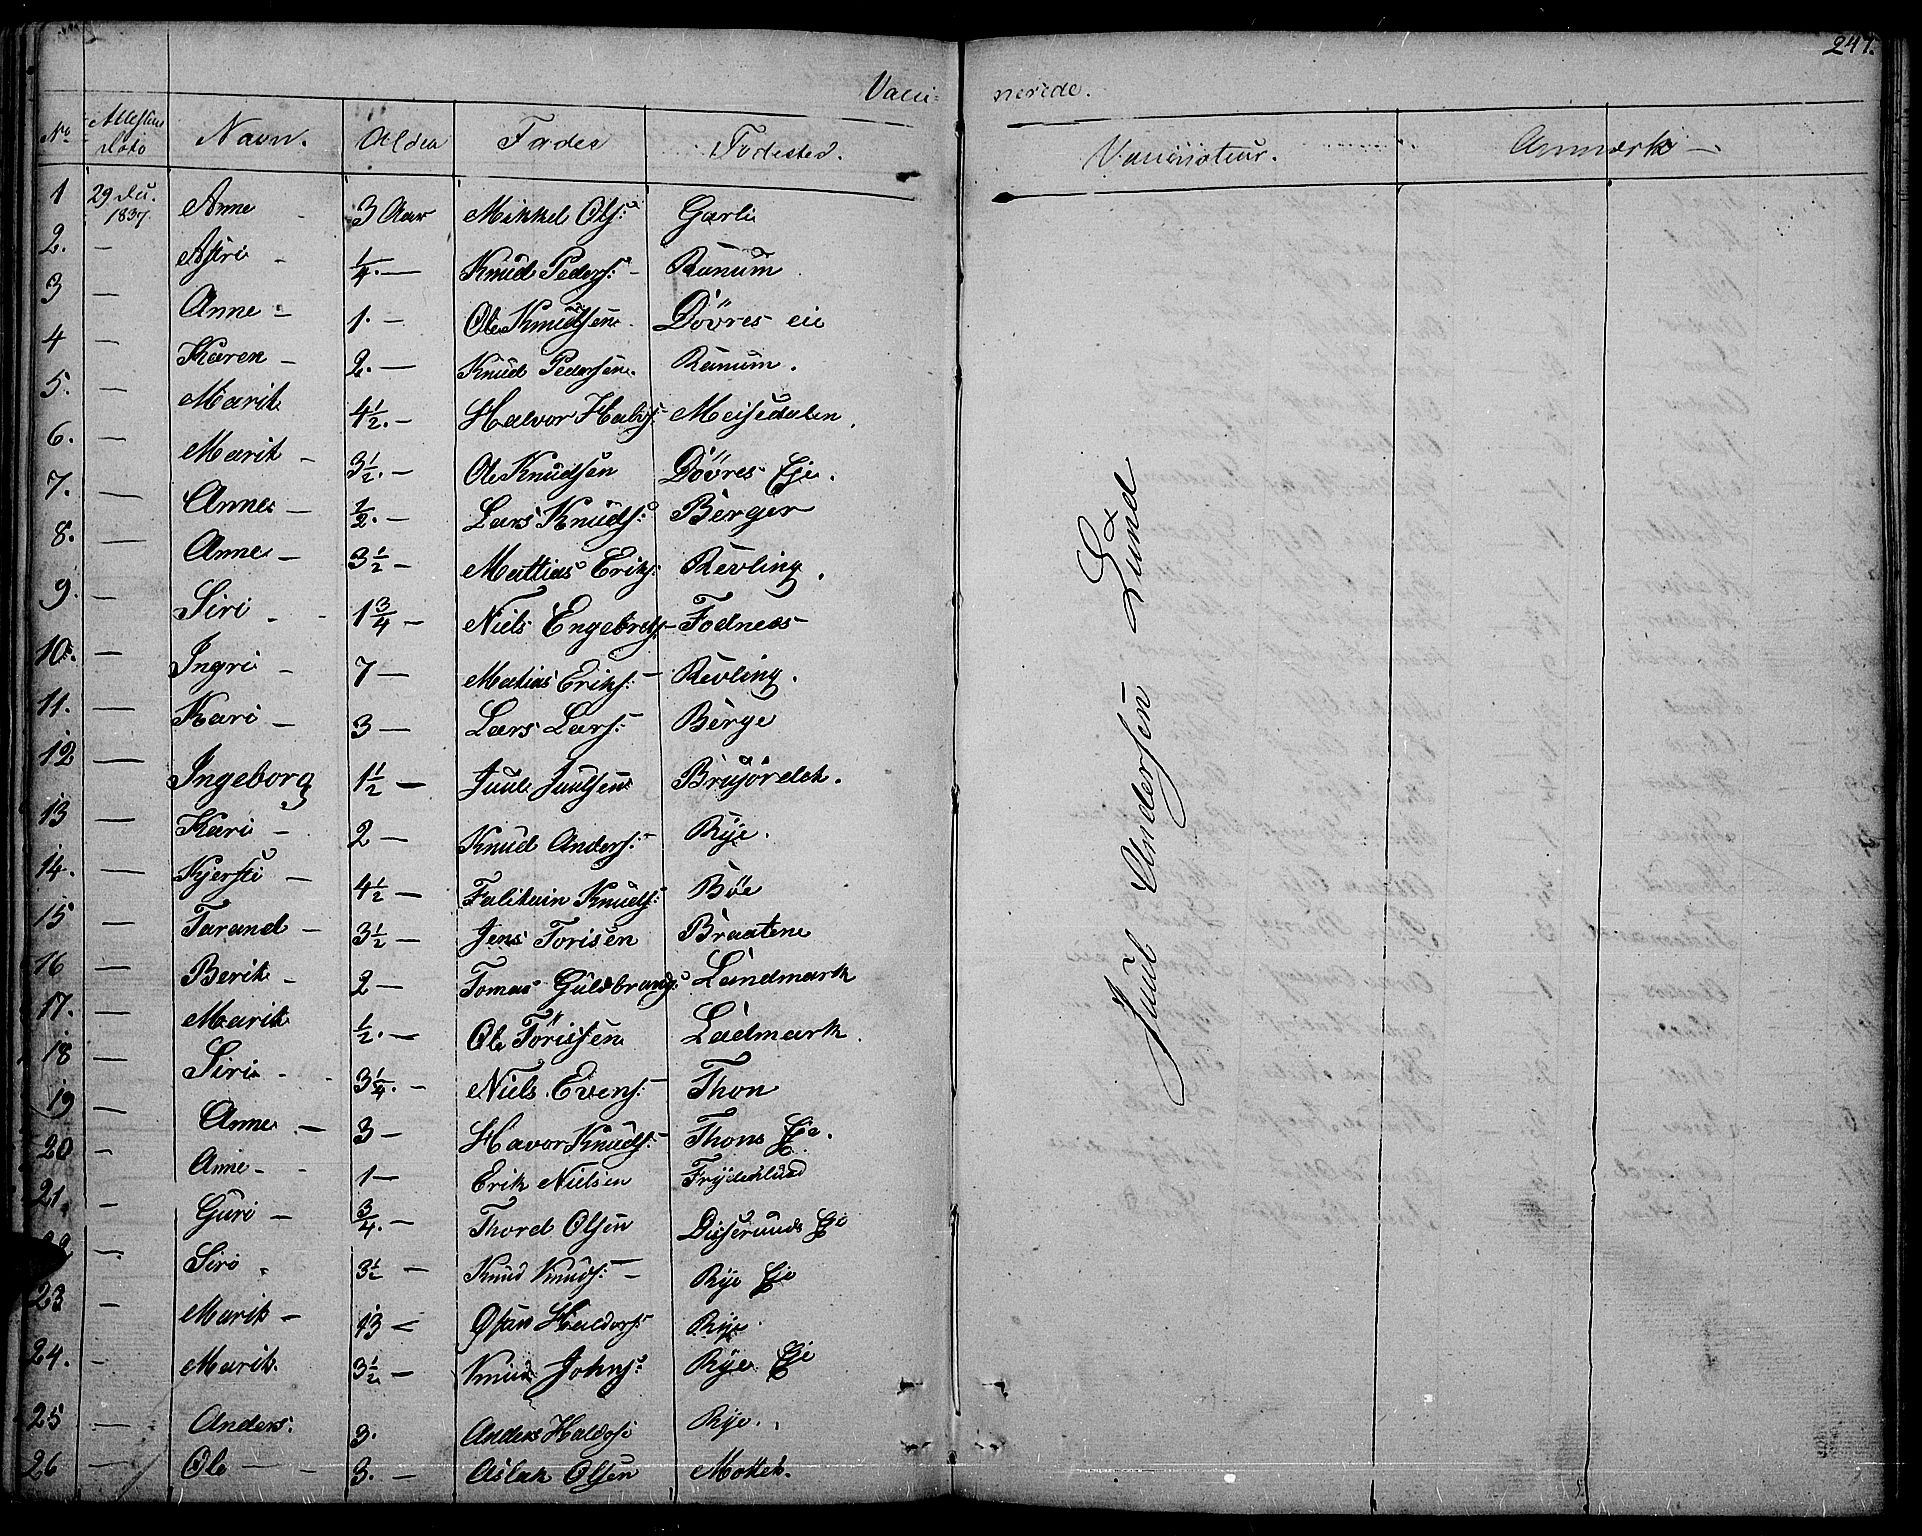 247.
Vacci- nerede.
No Attestens Dato Navn. Alder Fader Fødested. Vaccinateur. Anmærk
1 29 Du. 1837. Anne 3 Aar Mikkel Ols: Garli
2. — Astri - 1/4. — Knud Peders: - Rünum
3 — Anne - 1. — Ole Knudsen Dövres eie
4 — Karen - 2. — Knud Pedersen. Rünum.
5. — Marit 4 1/2. - Halvor Halvs: Meisedalen.
6. — Marit - 3 1/2. — Ole Knudsen Dövres Eje.
7. — Anne - 1/2. — Lars Knuds: Berger
8. — Anne - 3 1/2 — Mattias Eriks: Revling.
9. — Siri - 1 3/4 — Niels Engebrets - Fodnees
10. — Ingri - 7 — Matias Eriks: Revling.
11. — Kari - 3 — Lars Lars: Berge
12 — Ingeborg 1 1/2 — Juul Juulsen
13 — Kari - 2 — Knud Anders: Rye.
14. — Kjersti - 4 1/2 — Knuds: Böe
15 — Tarand - 3 1/2 — Jens Torisen Braatene
16 — Berit - 2 — Tomas Guldbrands: Landmark
17. — Marit 1/2. — Ole Törissen Ladmark.
18 — Siri - 3 1/4. — Niels Evens: Thon
19 — Anne - 3 — Havor Knuds: Thons Eje.
20 - Anne - 1 — Erik Nielsen Frydenlund
21. - Guri - 3/4. — Thord Olsen Disserunds Eje
22 — Siri - 3 1/2 — Knud Knuds: - Rye Eje
23 — Marit - 13 — Haldors: Rye
24. - Marit. 3 1/2 — Knud Johns: Rye Eje
25 — Anders. 3. Anders Haldors: Rye.
26 — Ole — 3. - Aslak Olsen Mottet.
Juul Andersen Lund